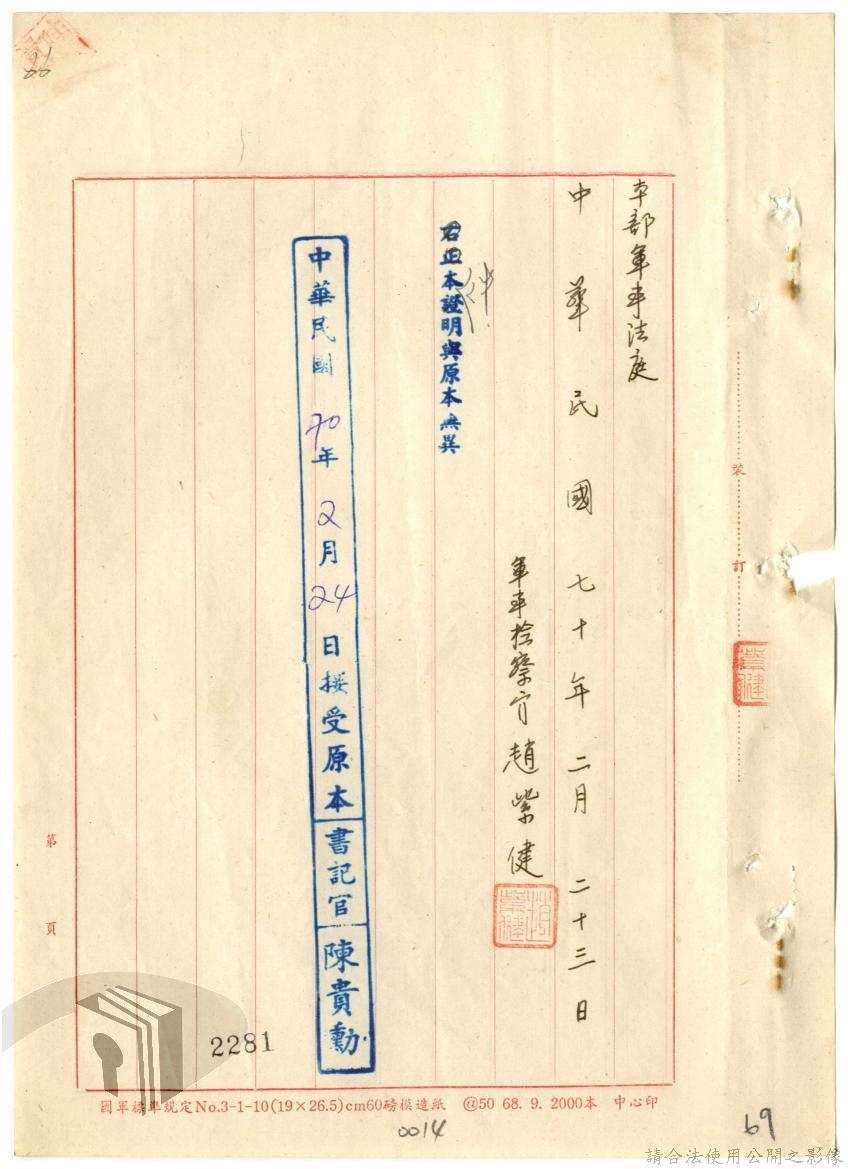 本部軍事法庭
中華民國七十年二月二十三日
軍事檢察官趙紫健
趙紫健
右正本證明與原本無異
中華民國70年2月24日接受原本書記官陳貴勳
裝
訂
第 頁
2281
國軍標準規定No.3-1-10(19×26.5)cm60磅模造紙 @50 68.9.2000本 中心印
0014
69
請合法使用公開之影像